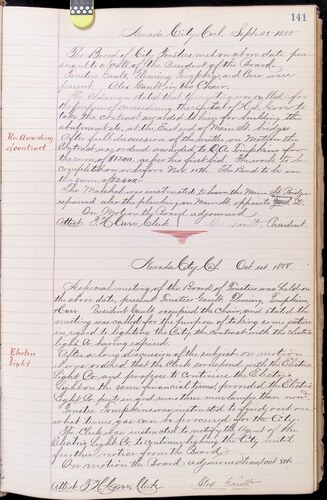 141
Nevada City, Cal. Sept. 28 1888
The Board of City Trustees met on above date pur
suant to a call of the President of the Board.
Trustees Gault, Fleming, Tompkins and Carr were
present. Alex Gault in the Chair.
The Chairman stated that the meeting was called for
the purpose of considering the refusal of
take the contract awarded to him for building the
abutments etc. at the East end of Main St. Bridge
Re-Awarding
of contract
After a discussion of the subject, on Motion the
Contract was ordered awarded to
the sum of as per his first bid. The work to be
completed on or before Nov. 15th. The Bond to be in
the sum of
The Marshal was instructed to have the Main St. Bridge
repaired also the planking on Main St. opposite
On Motion the Board adjourned
Attest. T. H. Carr, Clerk President
Nevada City, Cal. Oct 1st 1888.
A special meeting of the Board of Trustees was held on
the above date, present Trustees Gault, Fleming, Tompkins
& Carr. President Gault occupied the Chair, and stated the
meeting was called for the purpose of taking some action
in regard to lighting the City, the contract with the Electric
light Co. having expired.
Electric
Light
After a long discussion of the subject, on motion
it was ordered that the Clerk respond to the Electric
Light Co. and propose to Continue the Electric
Light on the same financial terms, provided the Electric
Light Co. put in more lamps than now.
Trustee Tompkins was instructed to find out on
what terms gas can be procured for the City.
The Clerk was instructed to notify the Agent of the
Electric Light Co. to continue lighting the City until
further notice from the Board.
On motion the Board adjourned to Oct 8th
Attest. T. H. Carr, Clerk Alex Gault